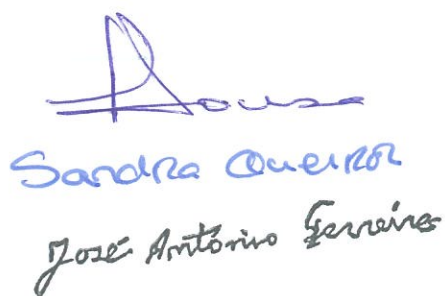 Sousa
Sandra Queiroz
José António Ferreira